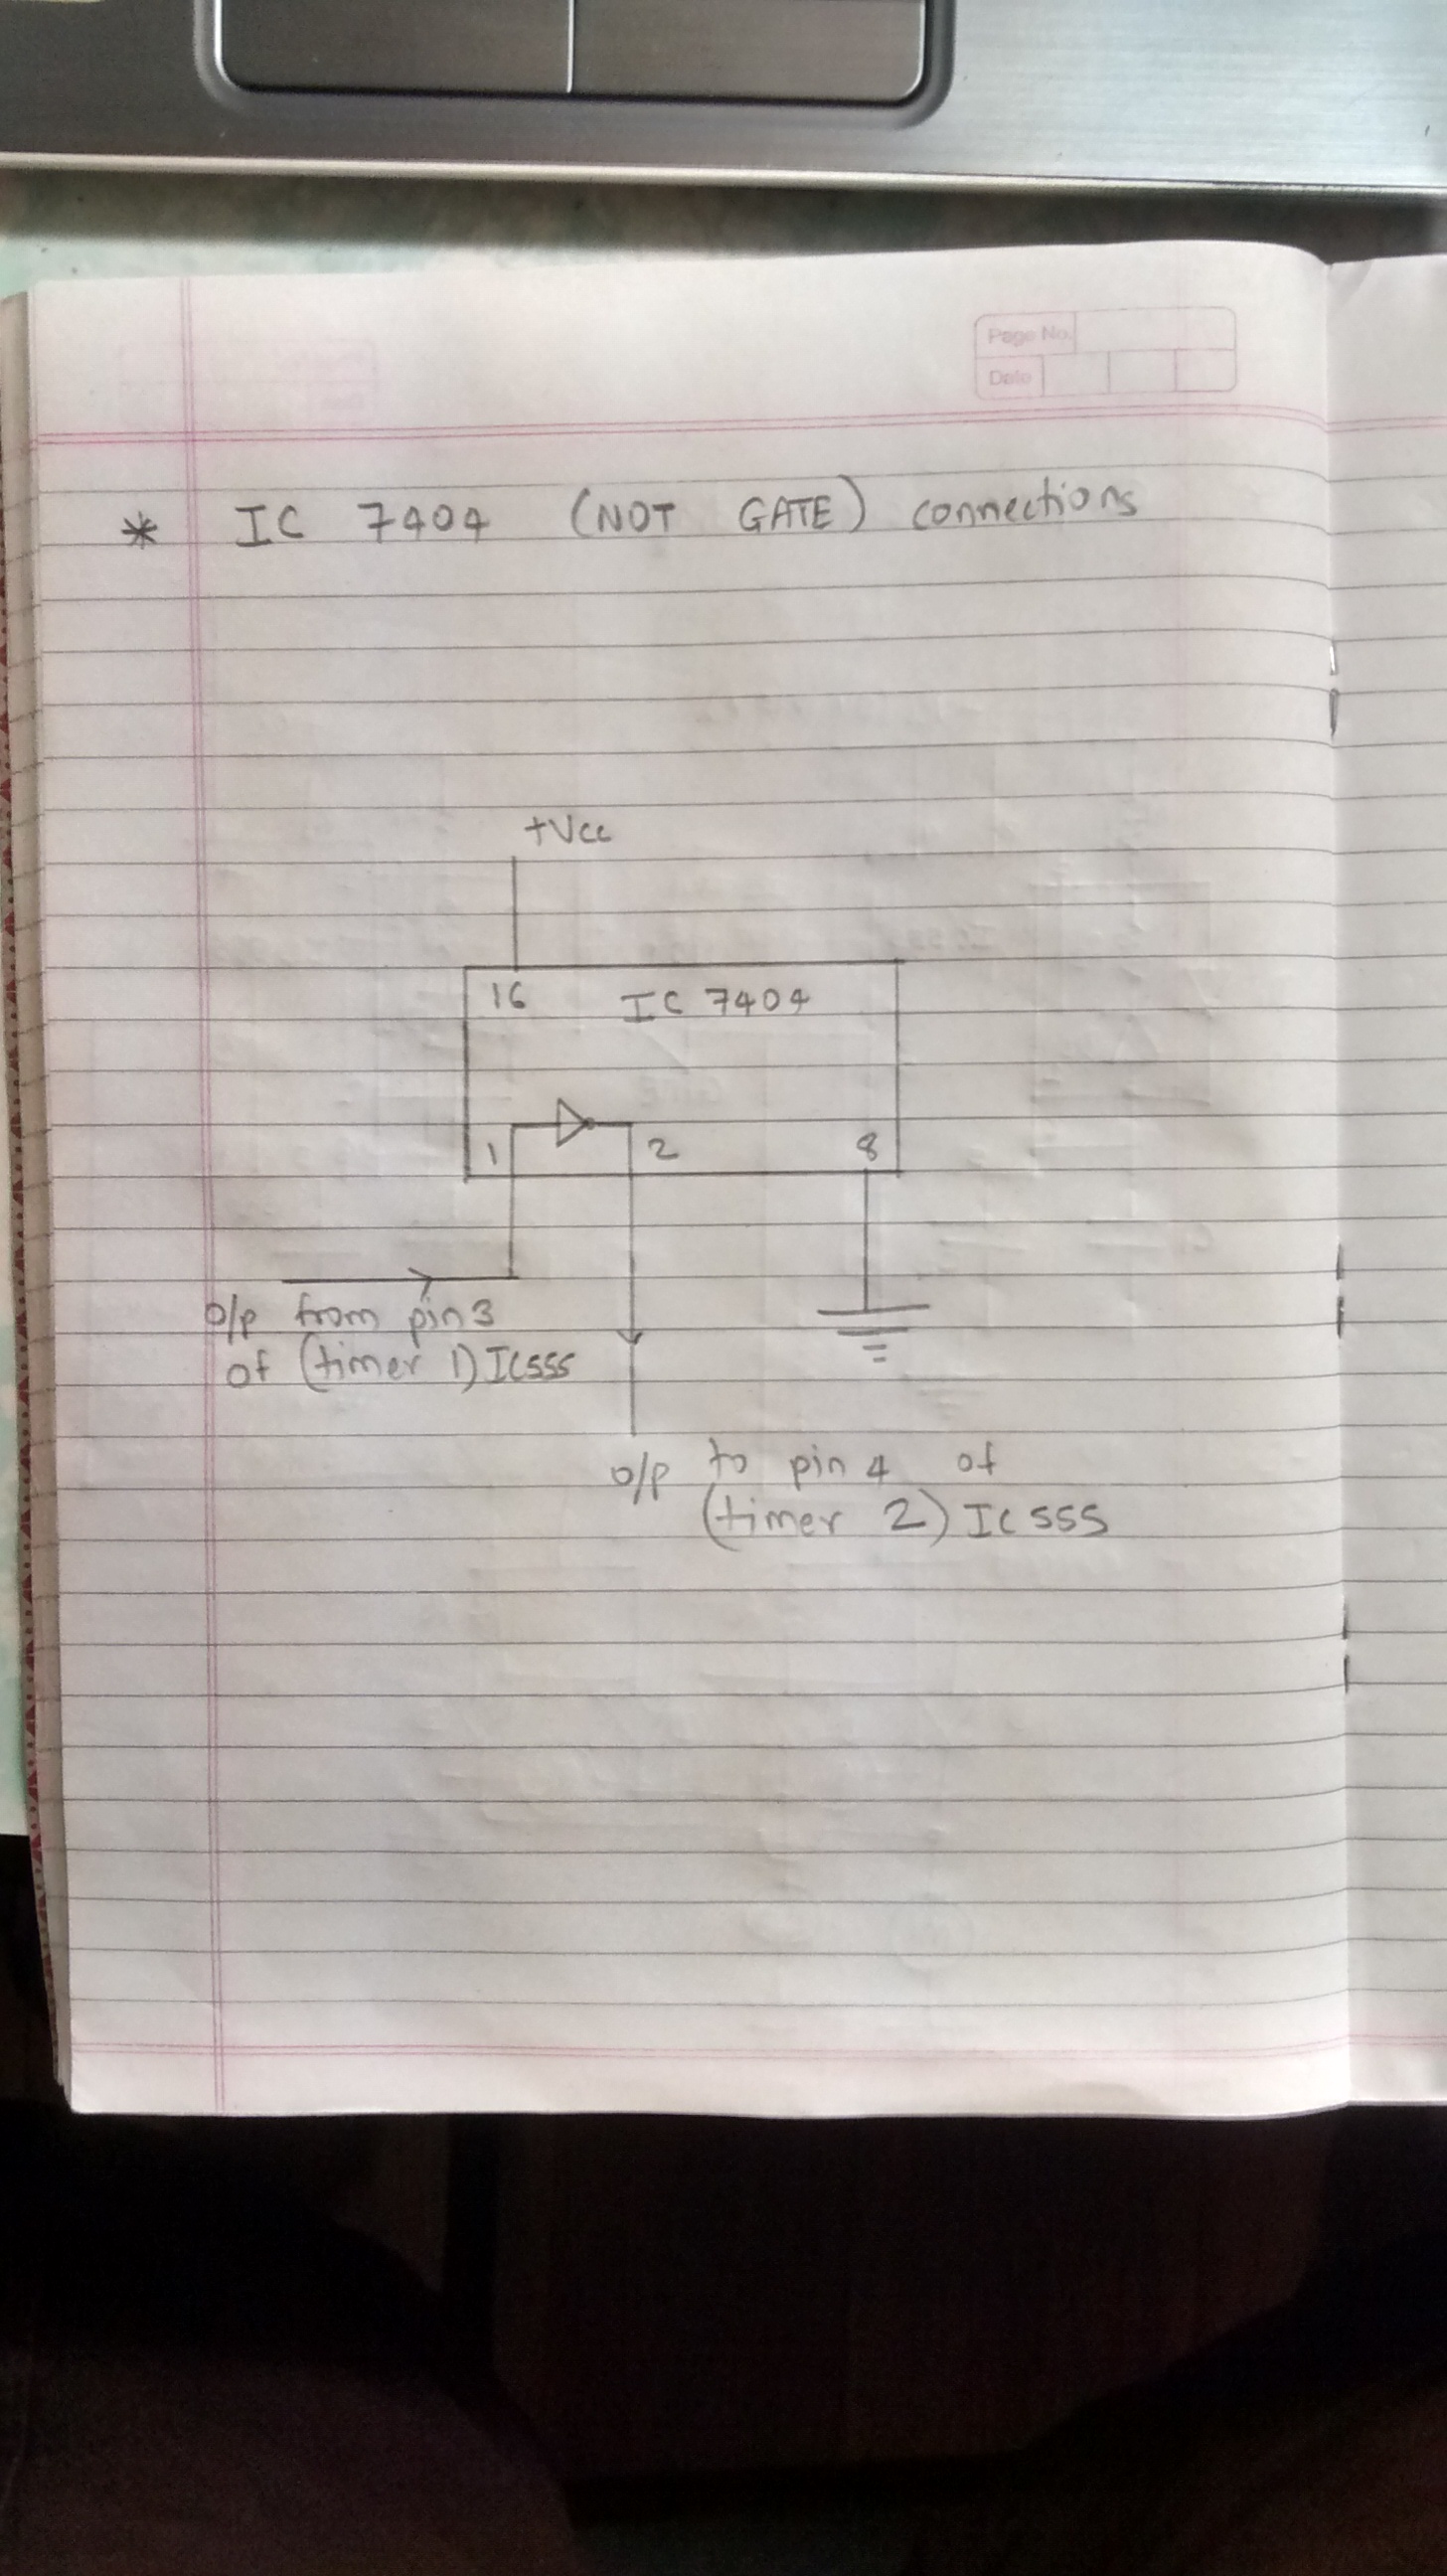 Page No.
Date
* IC 7404 (NOT GATE) connections
+Vcc
16 IC 7404
1 2 8
o/p from pin 3
of (timer 1) IC555
o/p to pin 4 of
(timer 2) IC 555